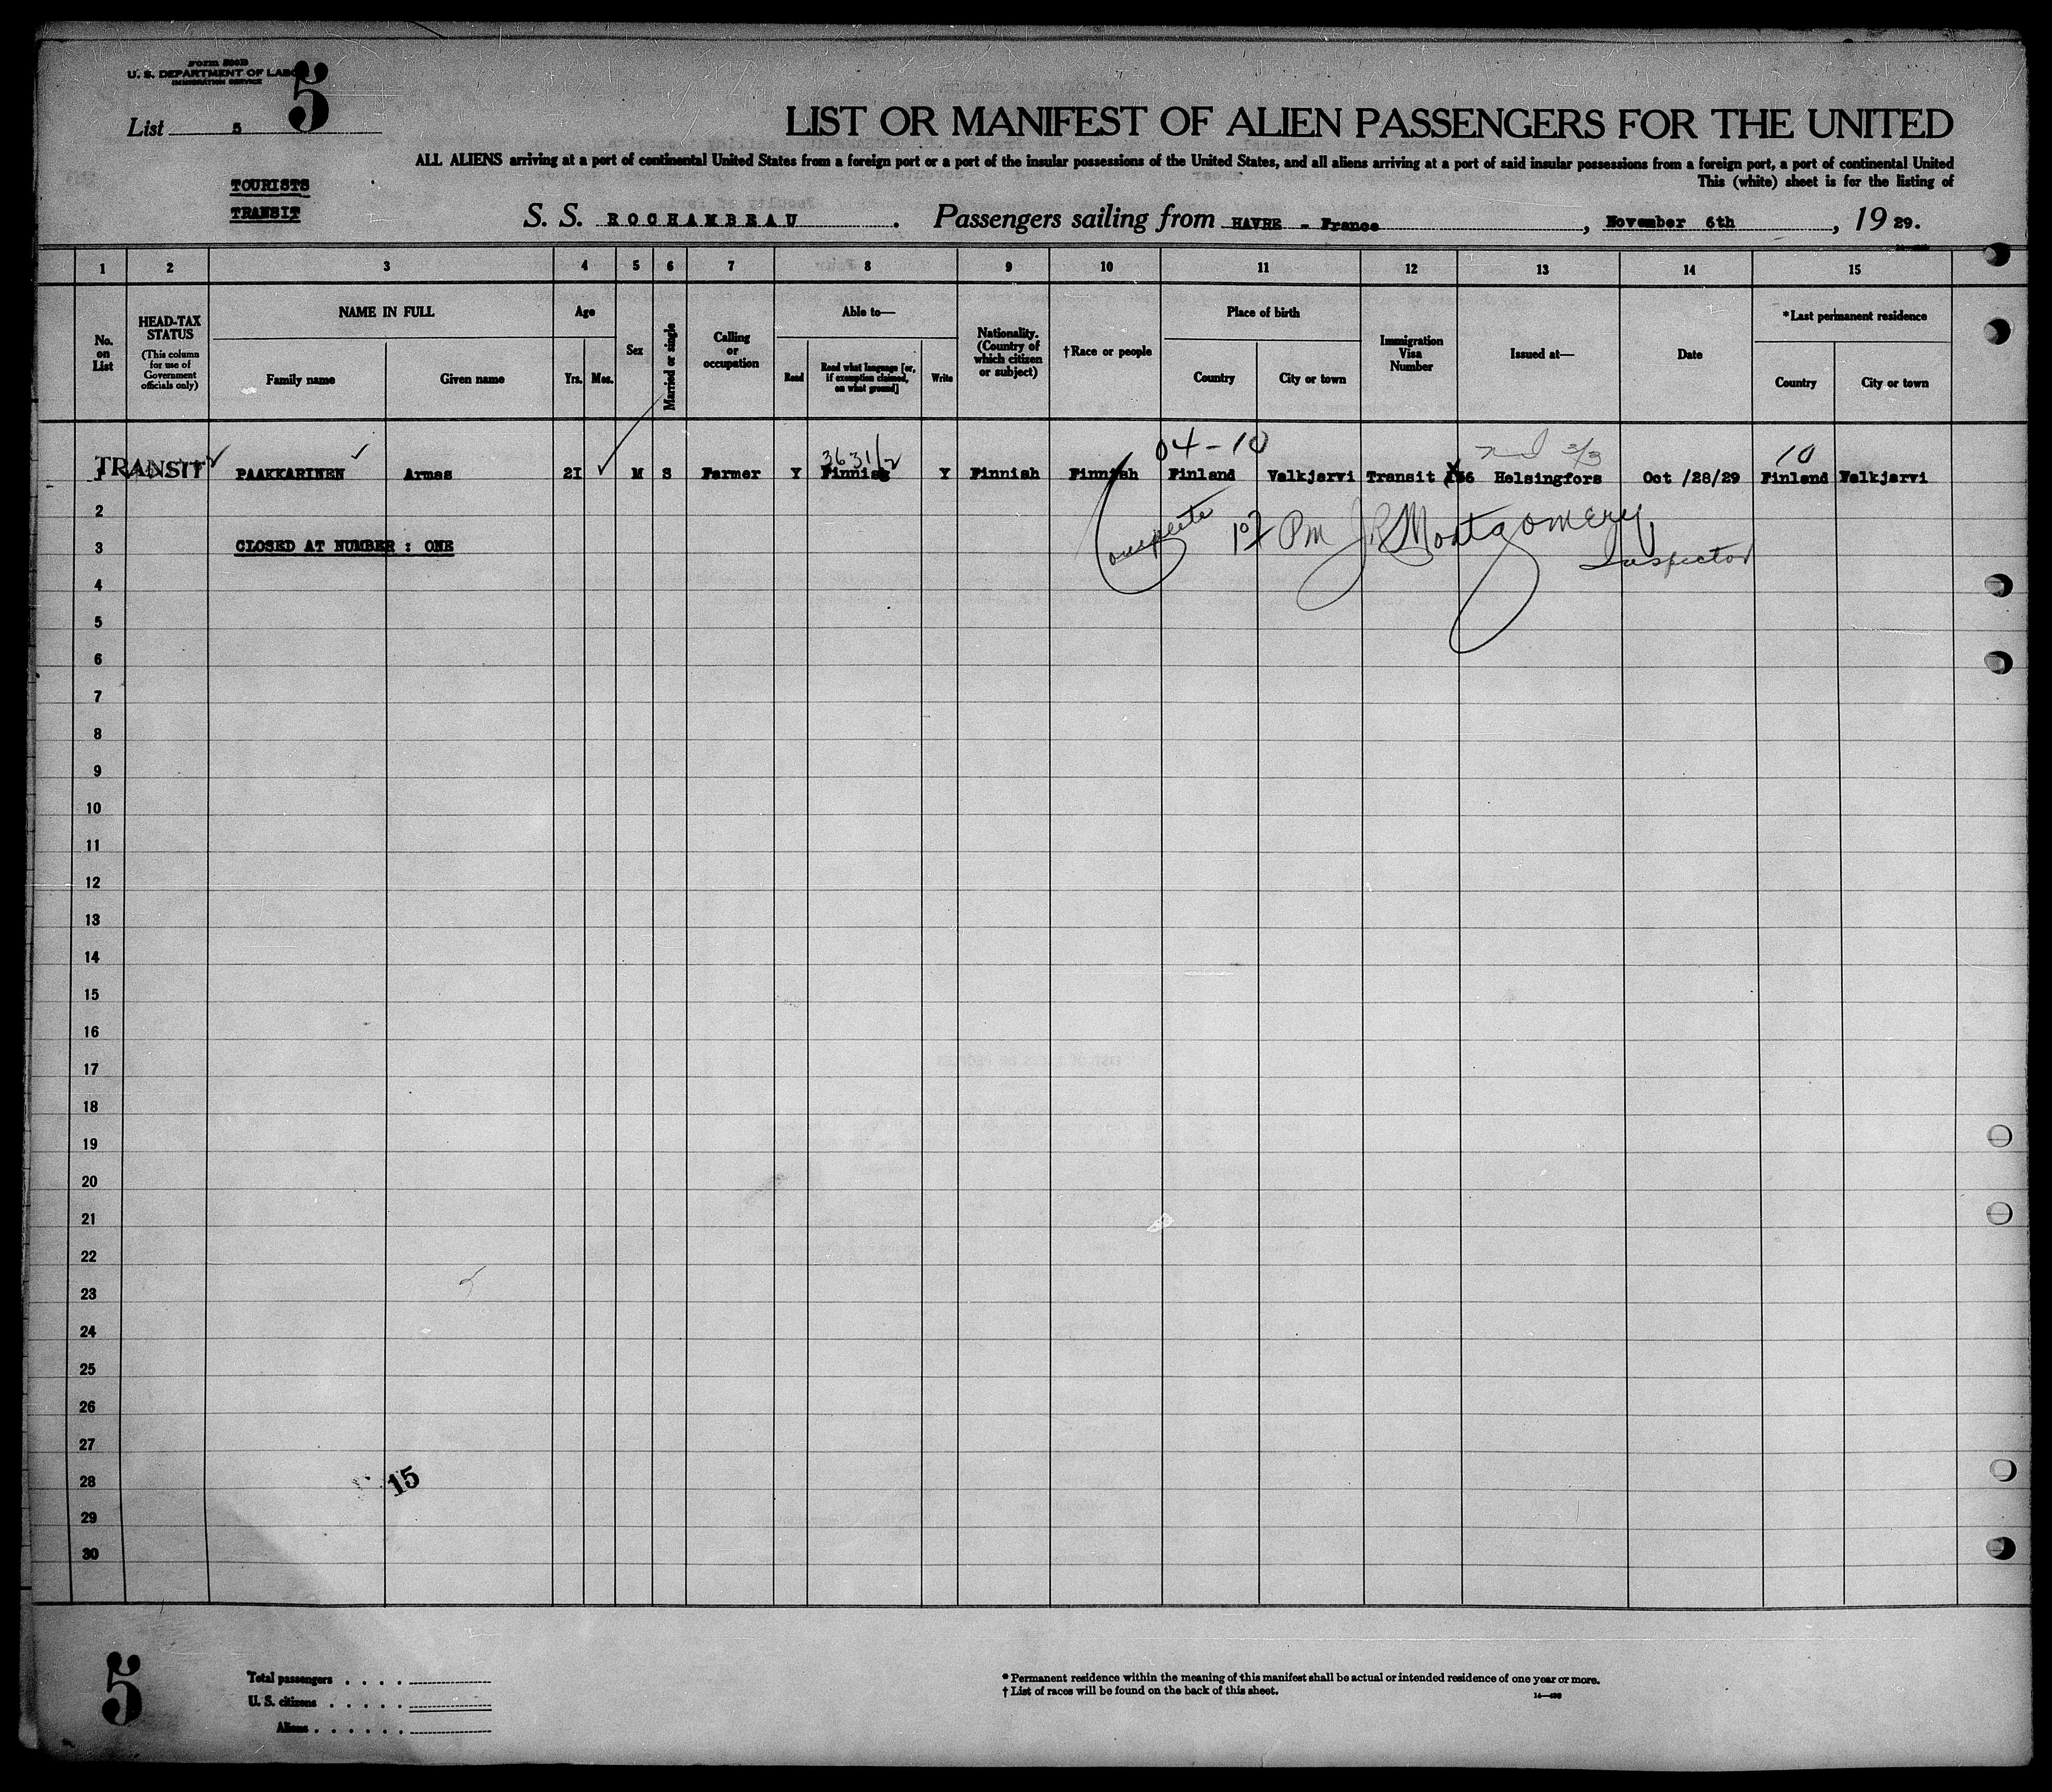 Form 500B
U. S. DEPARTMENT OF LABOR
IMMIGRATION SERVICE
5
List 5
LIST OR MANIFEST OF ALIEN PASSENGERS FOR THE UNITED
ALL ALIENS arriving at a port of continental United States from a foreign port or a port of the insular possessions of the United States, and all aliens arriving at a port of said insular possessions from a foreign port, a port of continental United
This (white) sheet is for the listing of
TOURISTS
TRANSIT
S. S. ROCHAMBEAU. Passengers sailing from HAVRE - France, November 6th, 19 29.
1 2 3 4 5 6 7 8 9 10 11 12 13 14 15
No. on List
HEAD-TAX STATUS (This column for use of Government officials only)
NAME IN FULL
Family name Given name
Age
Yrs. Mos.
Sex
Married or single
Calling or occupation
Able to—
Read Read what language [or, if exemption claimed, on what ground] Write
Nationality. (Country of which citizen or subject)
†Race or people
Place of birth
Country City or town
Immigration Visa Number
Issued at—
Date
*Last permanent residence
Country City or town
3631/2 04-10 10
1 TRANSIT PAAKKARINEN Armas 21 M S Farmer Y Finnish Y Finnish Finnish Finland Valkjarvi Transit 56 Helsingfors Oct /28/29 Finland Valkjarvi
2
Complete Pm J R Montgomery
3 CLOSED AT NUMBER : ONE
Inspector
4
5
6
7
8
9
10
11
12
13
14
15
16
17
18
19
20
21
22
23
24
25
26
27
28 15
29
30
5
Total passengers
U. S. citizens
Aliens
* Permanent residence within the meaning of this manifest shall be actual or intended residence of one year or more.
† List of races will be found on the back of this sheet.